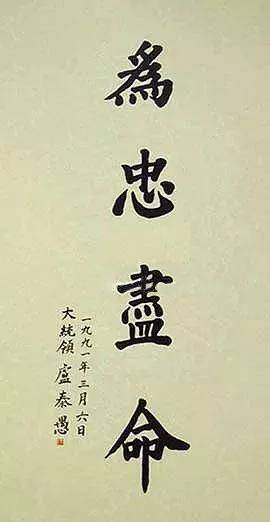 爲忠盡命
一九九一年三月六日
大統領 盧泰愚